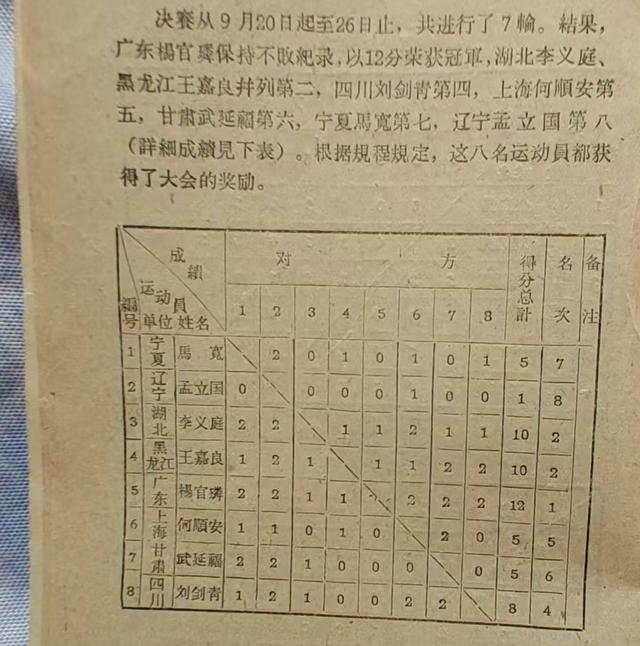 决赛从9月20日起至26日止，共进行了7輪。結果，
广东楊官璘保持不敗紀录，以12分荣获冠軍，湖北李义庭、
黑龙江王嘉良幷列第二，四川刘剑青第四，上海何順安第
五，甘肃武延福第六，宁夏馬寬第七，辽宁孟立国第八
（詳細成績見下表）。根据規程規定，这八名运动員都获
得了大会的奖励。
成績 对方 得分总計 名次 备注
运动員
編号 单位 姓名 1 2 3 4 5 6 7 8
1 宁夏 馬寬 2 0 1 0 1 0 1 5 7
2 辽宁 孟立国 0 0 0 0 1 0 0 1 8
3 湖北 李义庭 2 2 1 1 2 1 1 10 2
4 黑龙江 王嘉良 1 2 1 1 1 2 2 10 2
5 广东 楊官璘 2 2 1 1 2 2 2 12 1
6 上海 何順安 1 1 0 1 0 2 0 5 5
7 甘肃 武延福 2 2 1 0 0 0 0 5 6
8 四川 刘剑青 1 2 1 0 0 2 2 8 4